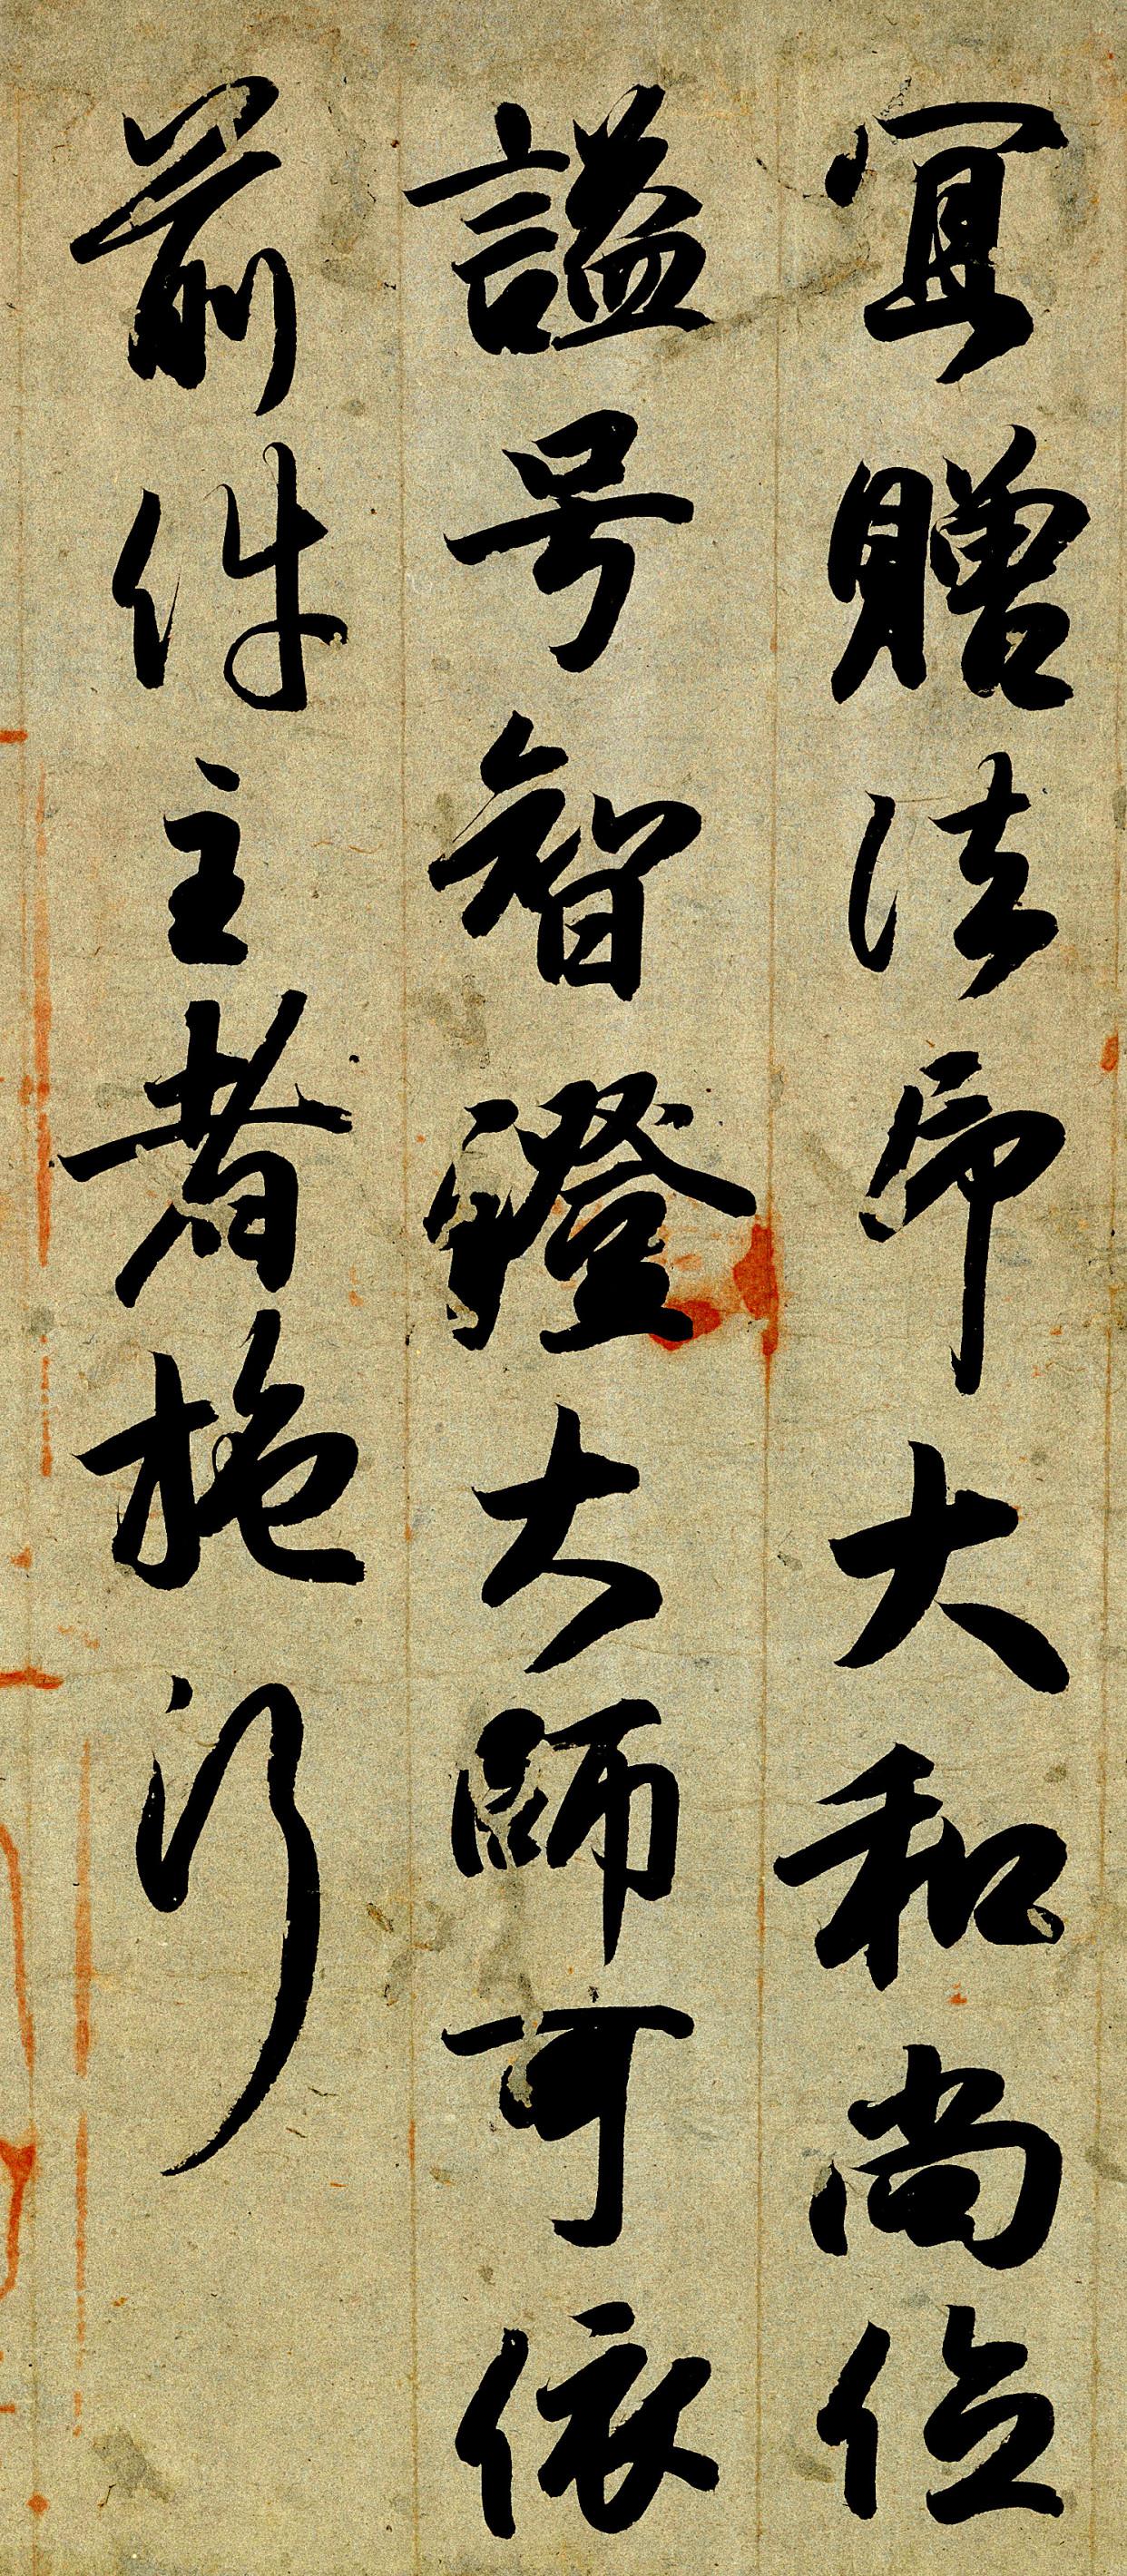 冝贈法印大和尚位
謚号智證大師可依
前件主者施行